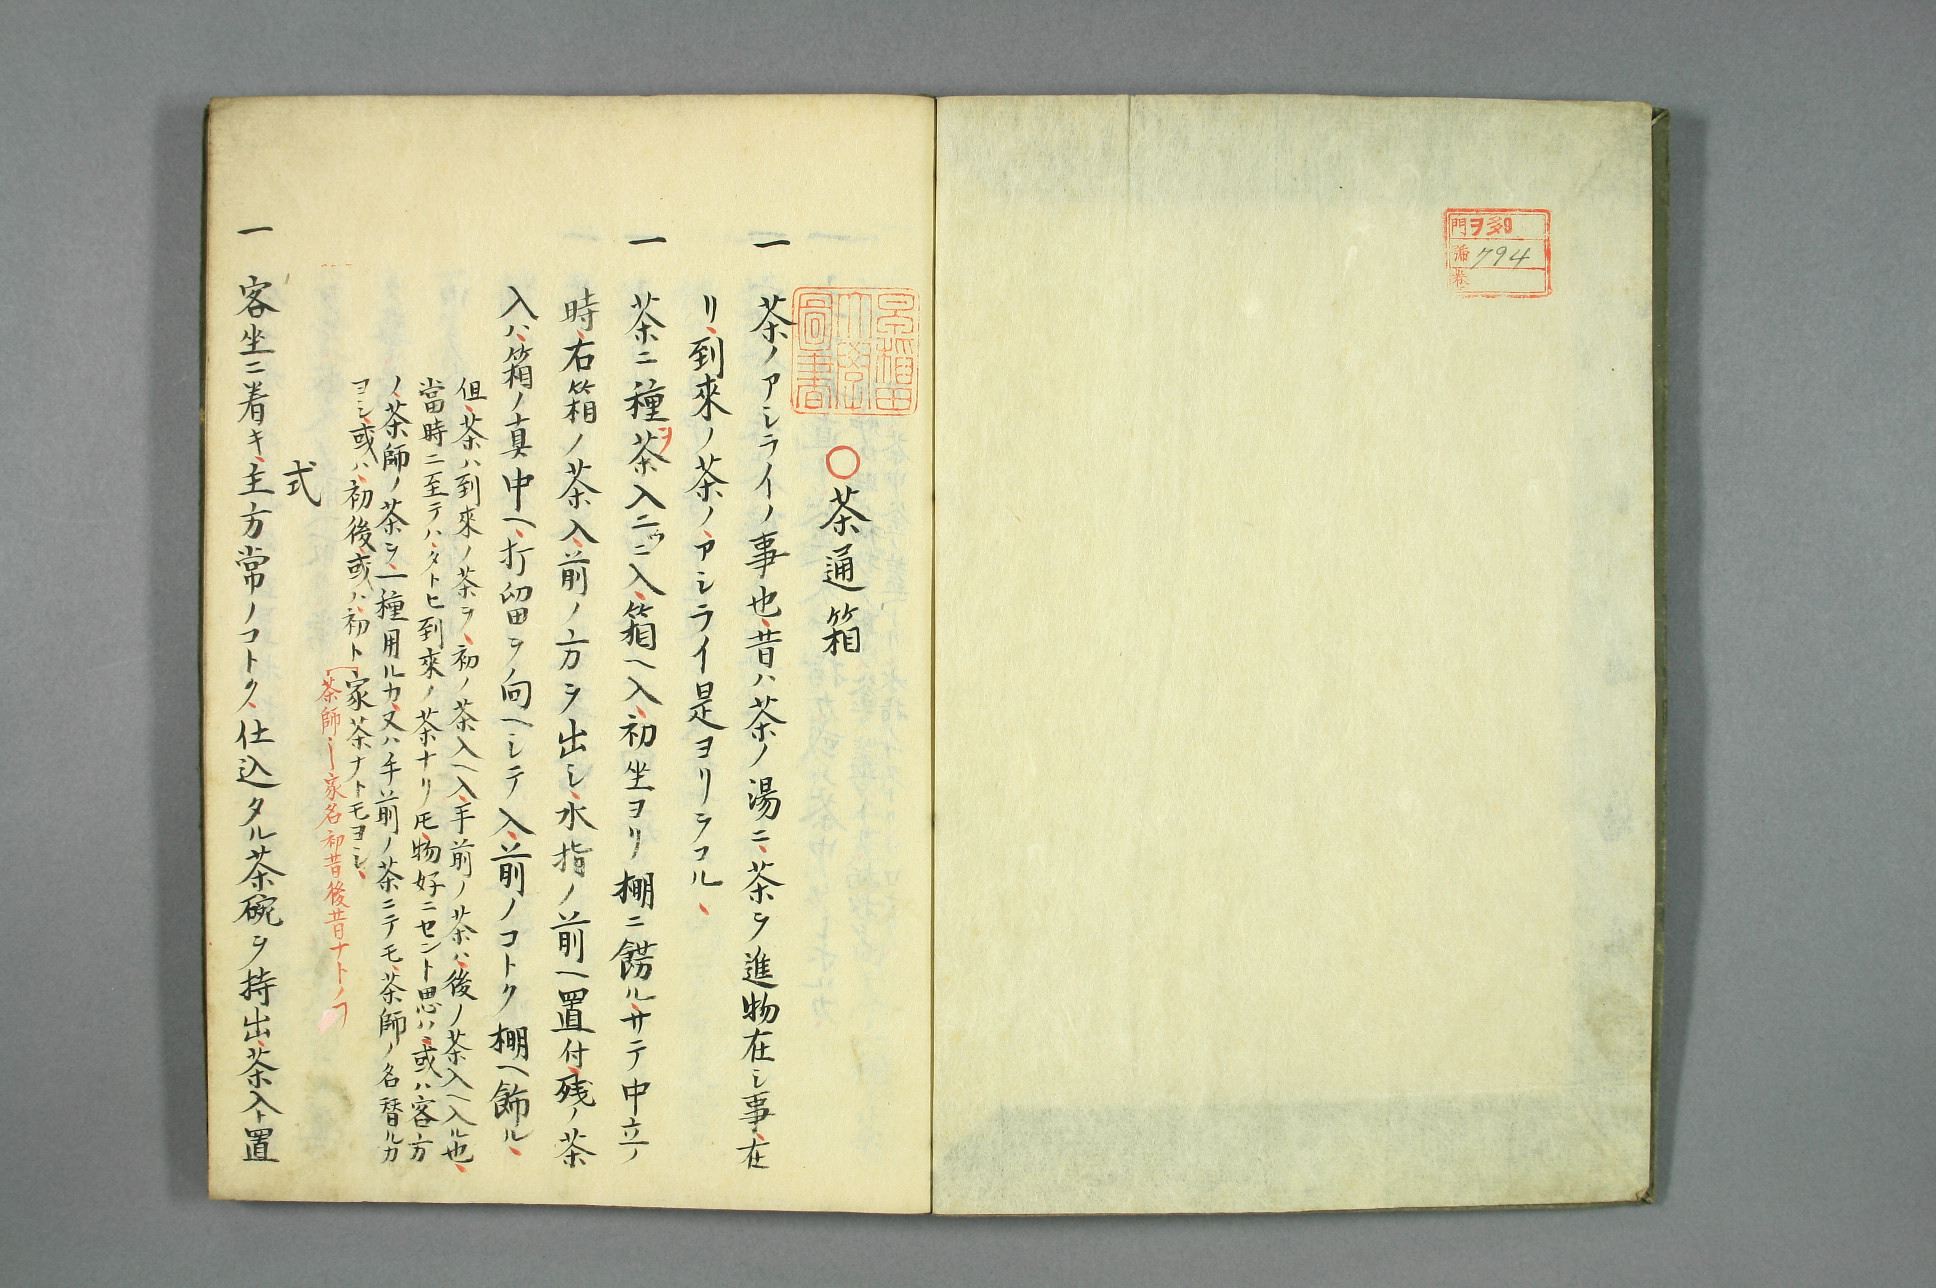 門 ヲ 9
號 794
卷
早稲田
大學
圖書
○茶通箱
一 茶ノアシライノ事也、昔ハ茶ノ湯ニ、茶ヲ進物在シ事、在
リ、到來ノ茶ノ、アシライ是ヨリヲコル、
一 茶ニ種ヲ茶入ニッニ入、箱ヘ入、初坐ヨリ棚ニ餝ル、サテ中立ノ
時、右箱ノ茶入、前ノ方ヲ出シ、水指ノ前ヘ置付、残ノ茶
入ハ、箱ノ真中ヘ、打留ヲ向ヘシテ入、前ノコトク棚ヘ飾ル、
但、茶ハ到來ノ茶ヲ、初ノ茶入ヘ入、手前ノ茶ハ、後ノ茶入ヘ入ル也、
當時ニ至テハ、タトヒ到來ノ茶ナリ𪜈、物好ニセント思ハ、或ハ客方
ノ、茶師ノ茶ヲ、一種用ルカ、又ハ手前ノ茶ニテモ、茶師ノ名替ルカ
ヨシ、或ハ、初後、或ハ、初ト家茶ナトモヨシ、
茶師ノ家名初昔後昔ナトノ
式
一 客坐ニ着キ、主方常ノコトク、仕込タル茶碗ヲ持出、茶入ト置